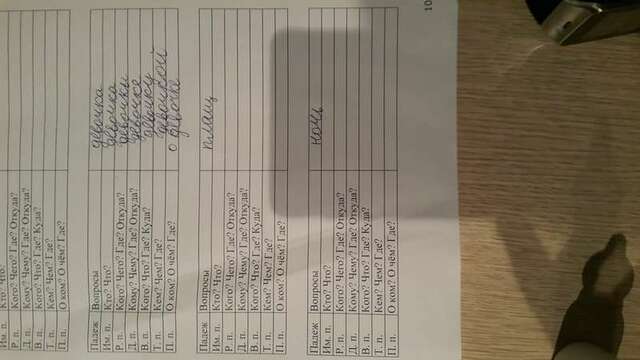 Им. п. Кто? Что?
Р. п. Кого? Чего? Где? Откуда?
Д. п. Кому? Чему? Где? Откуда?
В. п. Кого? Что? Где? Куда?
Т. п. Кем? Чем? Где?
П. п. О ком? О чём? Где?
Падеж Вопросы девочка
Им. п. Кто? Что? девочка
Р. п. Кого? Чего? Где? Откуда? девочки
Д. п. Кому? Чему? Где? Откуда? девочке
В. п. Кого? Что? Где? Куда? девочку
Т. п. Кем? Чем? Где? девочкой
П. п. О ком? О чём? Где? о девочке
Падеж Вопросы плащ
Им. п. Кто? Что?
Р. п. Кого? Чего? Где? Откуда?
Д. п. Кому? Чему? Где? Откуда?
В. п. Кого? Что? Где? Куда?
Т. п. Кем? Чем? Где?
П. п. О ком? О чём? Где?
Падеж Вопросы ночь
Им. п. Кто? Что?
Р. п. Кого? Чего? Где? Откуда?
Д. п. Кому? Чему? Где? Откуда?
В. п. Кого? Что? Где? Куда?
Т. п. Кем? Чем? Где?
П. п. О ком? О чём? Где?
10